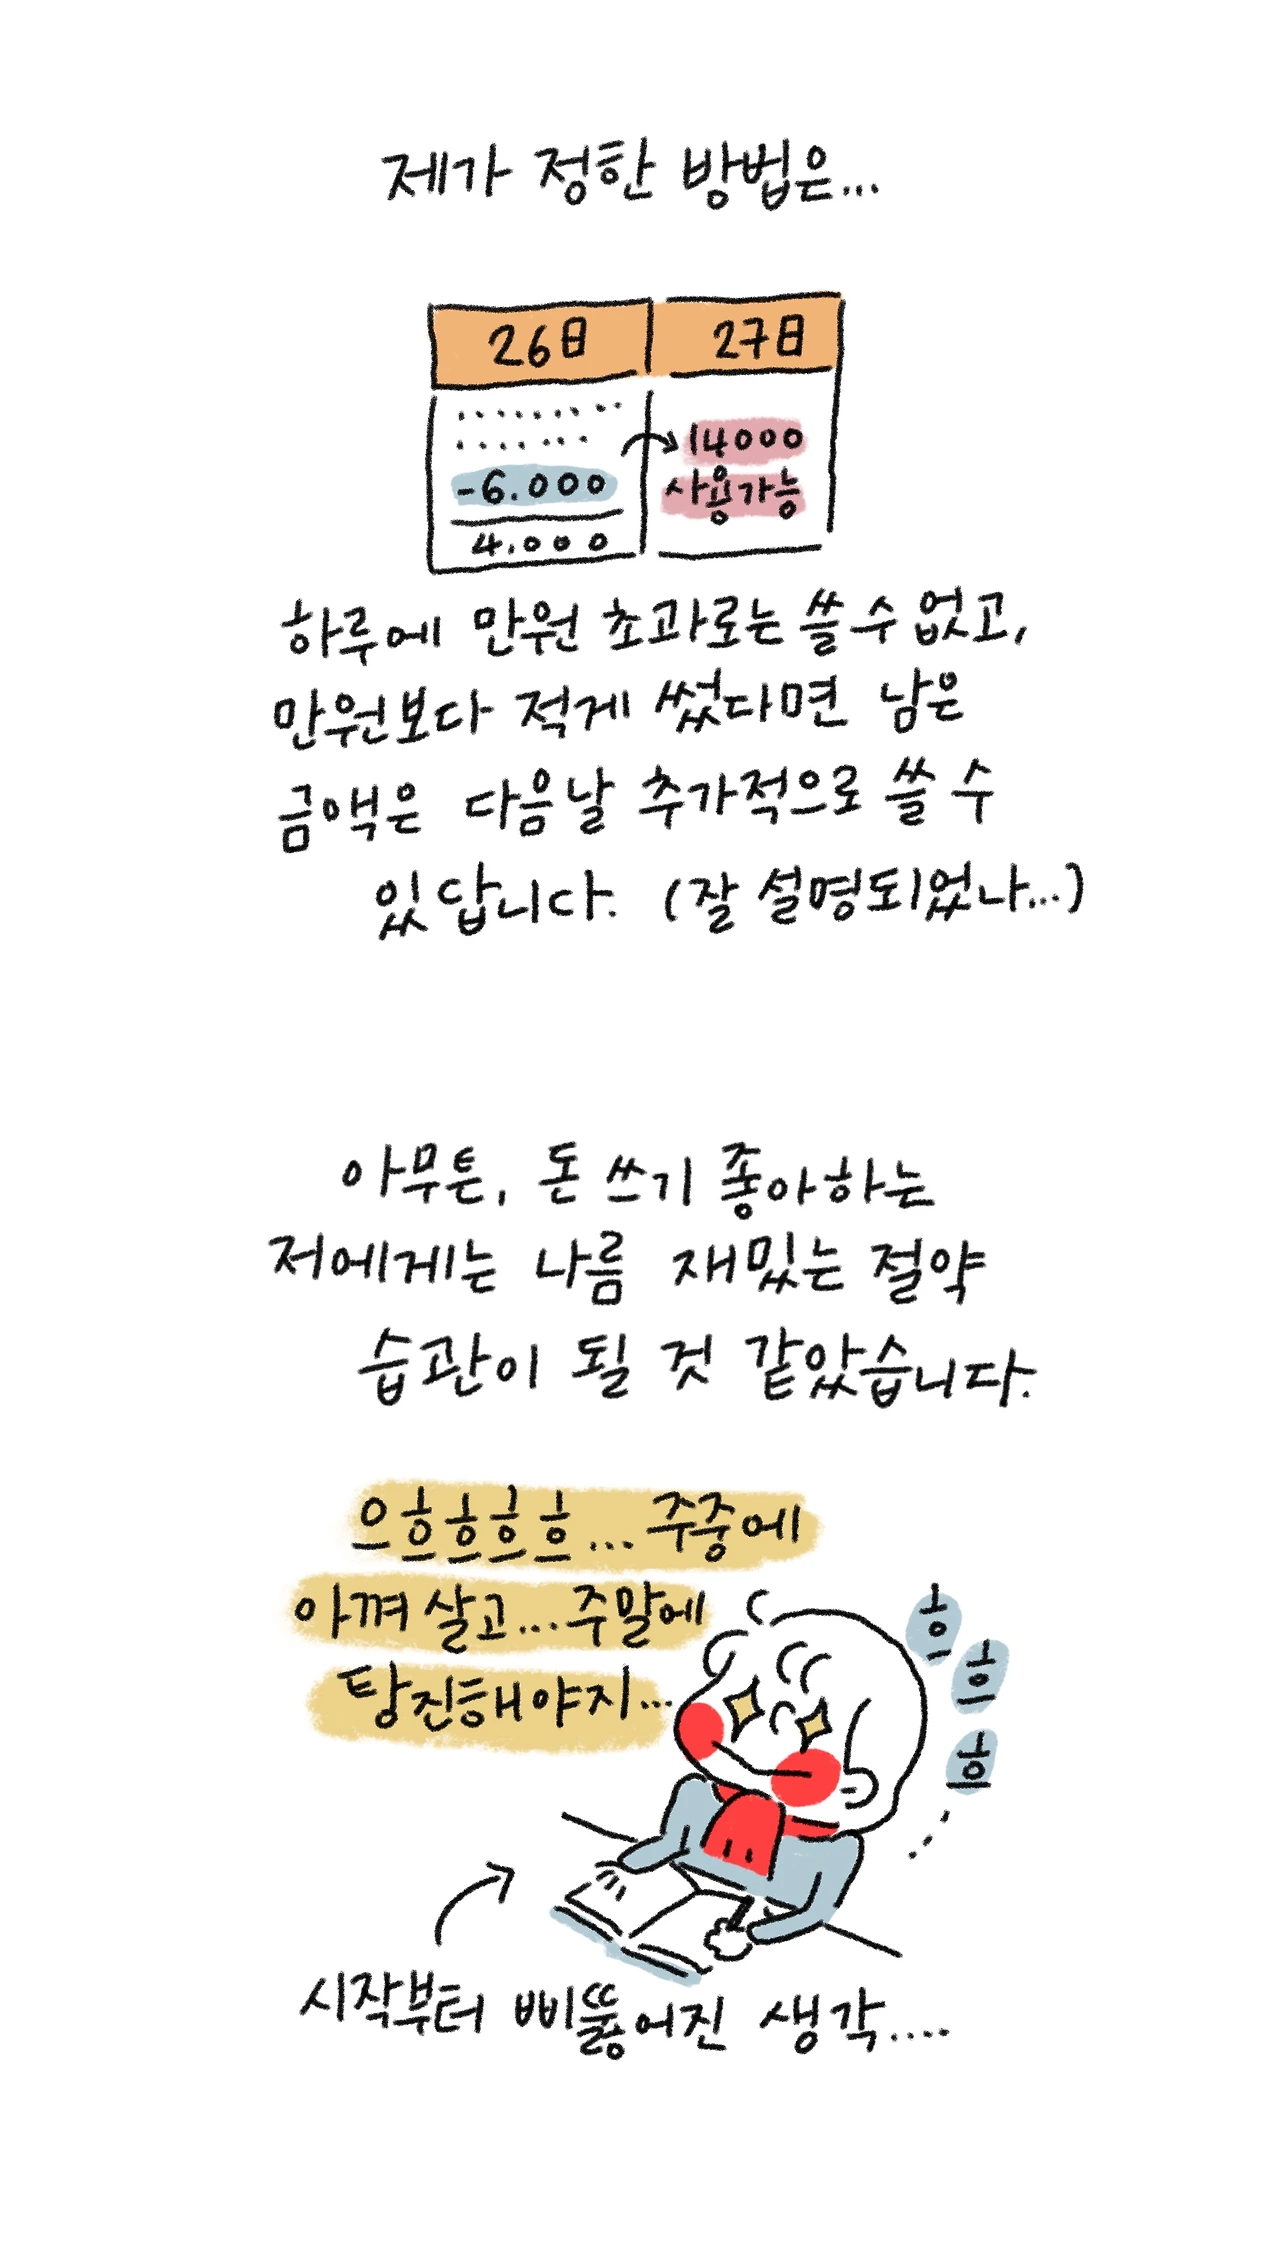 제가 정한 방법은...
26日 27日
14000
-6.000 사용가능
4.000
하루에 만원 초과로는 쓸 수 없고,
만원보다 적게 썼다면 남은
금액은 다음날 추가적으로 쓸 수
있답니다. (잘 설명되었나...)
아무튼, 돈 쓰기 좋아하는
저에게는 나름 재밌는 절약
습관이 될 것 같았습니다.
으흐흐흐흐... 주중에
아껴 살고... 주말에
탕진해야지...
흐
흐
흐
시작부터 삐뚫어진 생각....